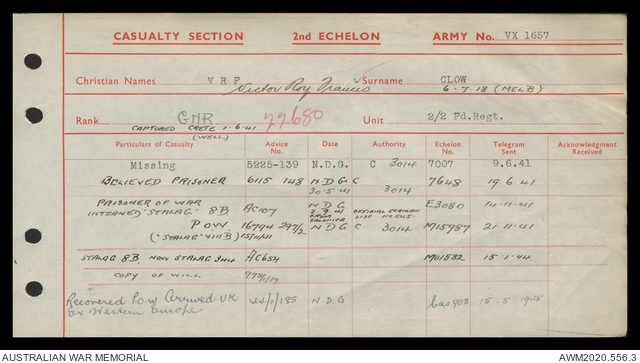 CASUALTY SECTION 2nd ECHELON ARMY No. VX 1657
Christian Names V R F Victor Roy Francis Surname CLOW
6-7-18 (MELB)
Rank GNR 77680 Unit 2/2 Fd.Regt.
CAPTURED CRETE 1-6-41
(WELL)
Particulars of Casualty Advice No. Date Authority Echelon No. Telegram Sent Acknowledgment Received
Missing 5225-139 N.D.G. C 3014 7007 9.6.41
BELIEVED PRISONER 6115 148 N D G C 7648 19 6 41
30-5-41 3014
PRISONER OF WAR N D G
INTERNED "STALAG" 8B AC107 2.9.41 OFFICIAL GERMAN E3080 14-11-41
FROM SALONICA LIST
P.O.W. 16794 297/2 N D G C 3014 M15987 21-11-41
("STALAG" VIII B) 15/11/41
STALAG 8B NOW STALAG 344 AC654 M01532 15.1.44
COPY OF WILL
Recovered P.o.W Arrived UK 44/1/185 N.D.G Cas908 15.5.1945
ex Western Europe
AUSTRALIAN WAR MEMORIAL AWM2020.556.3